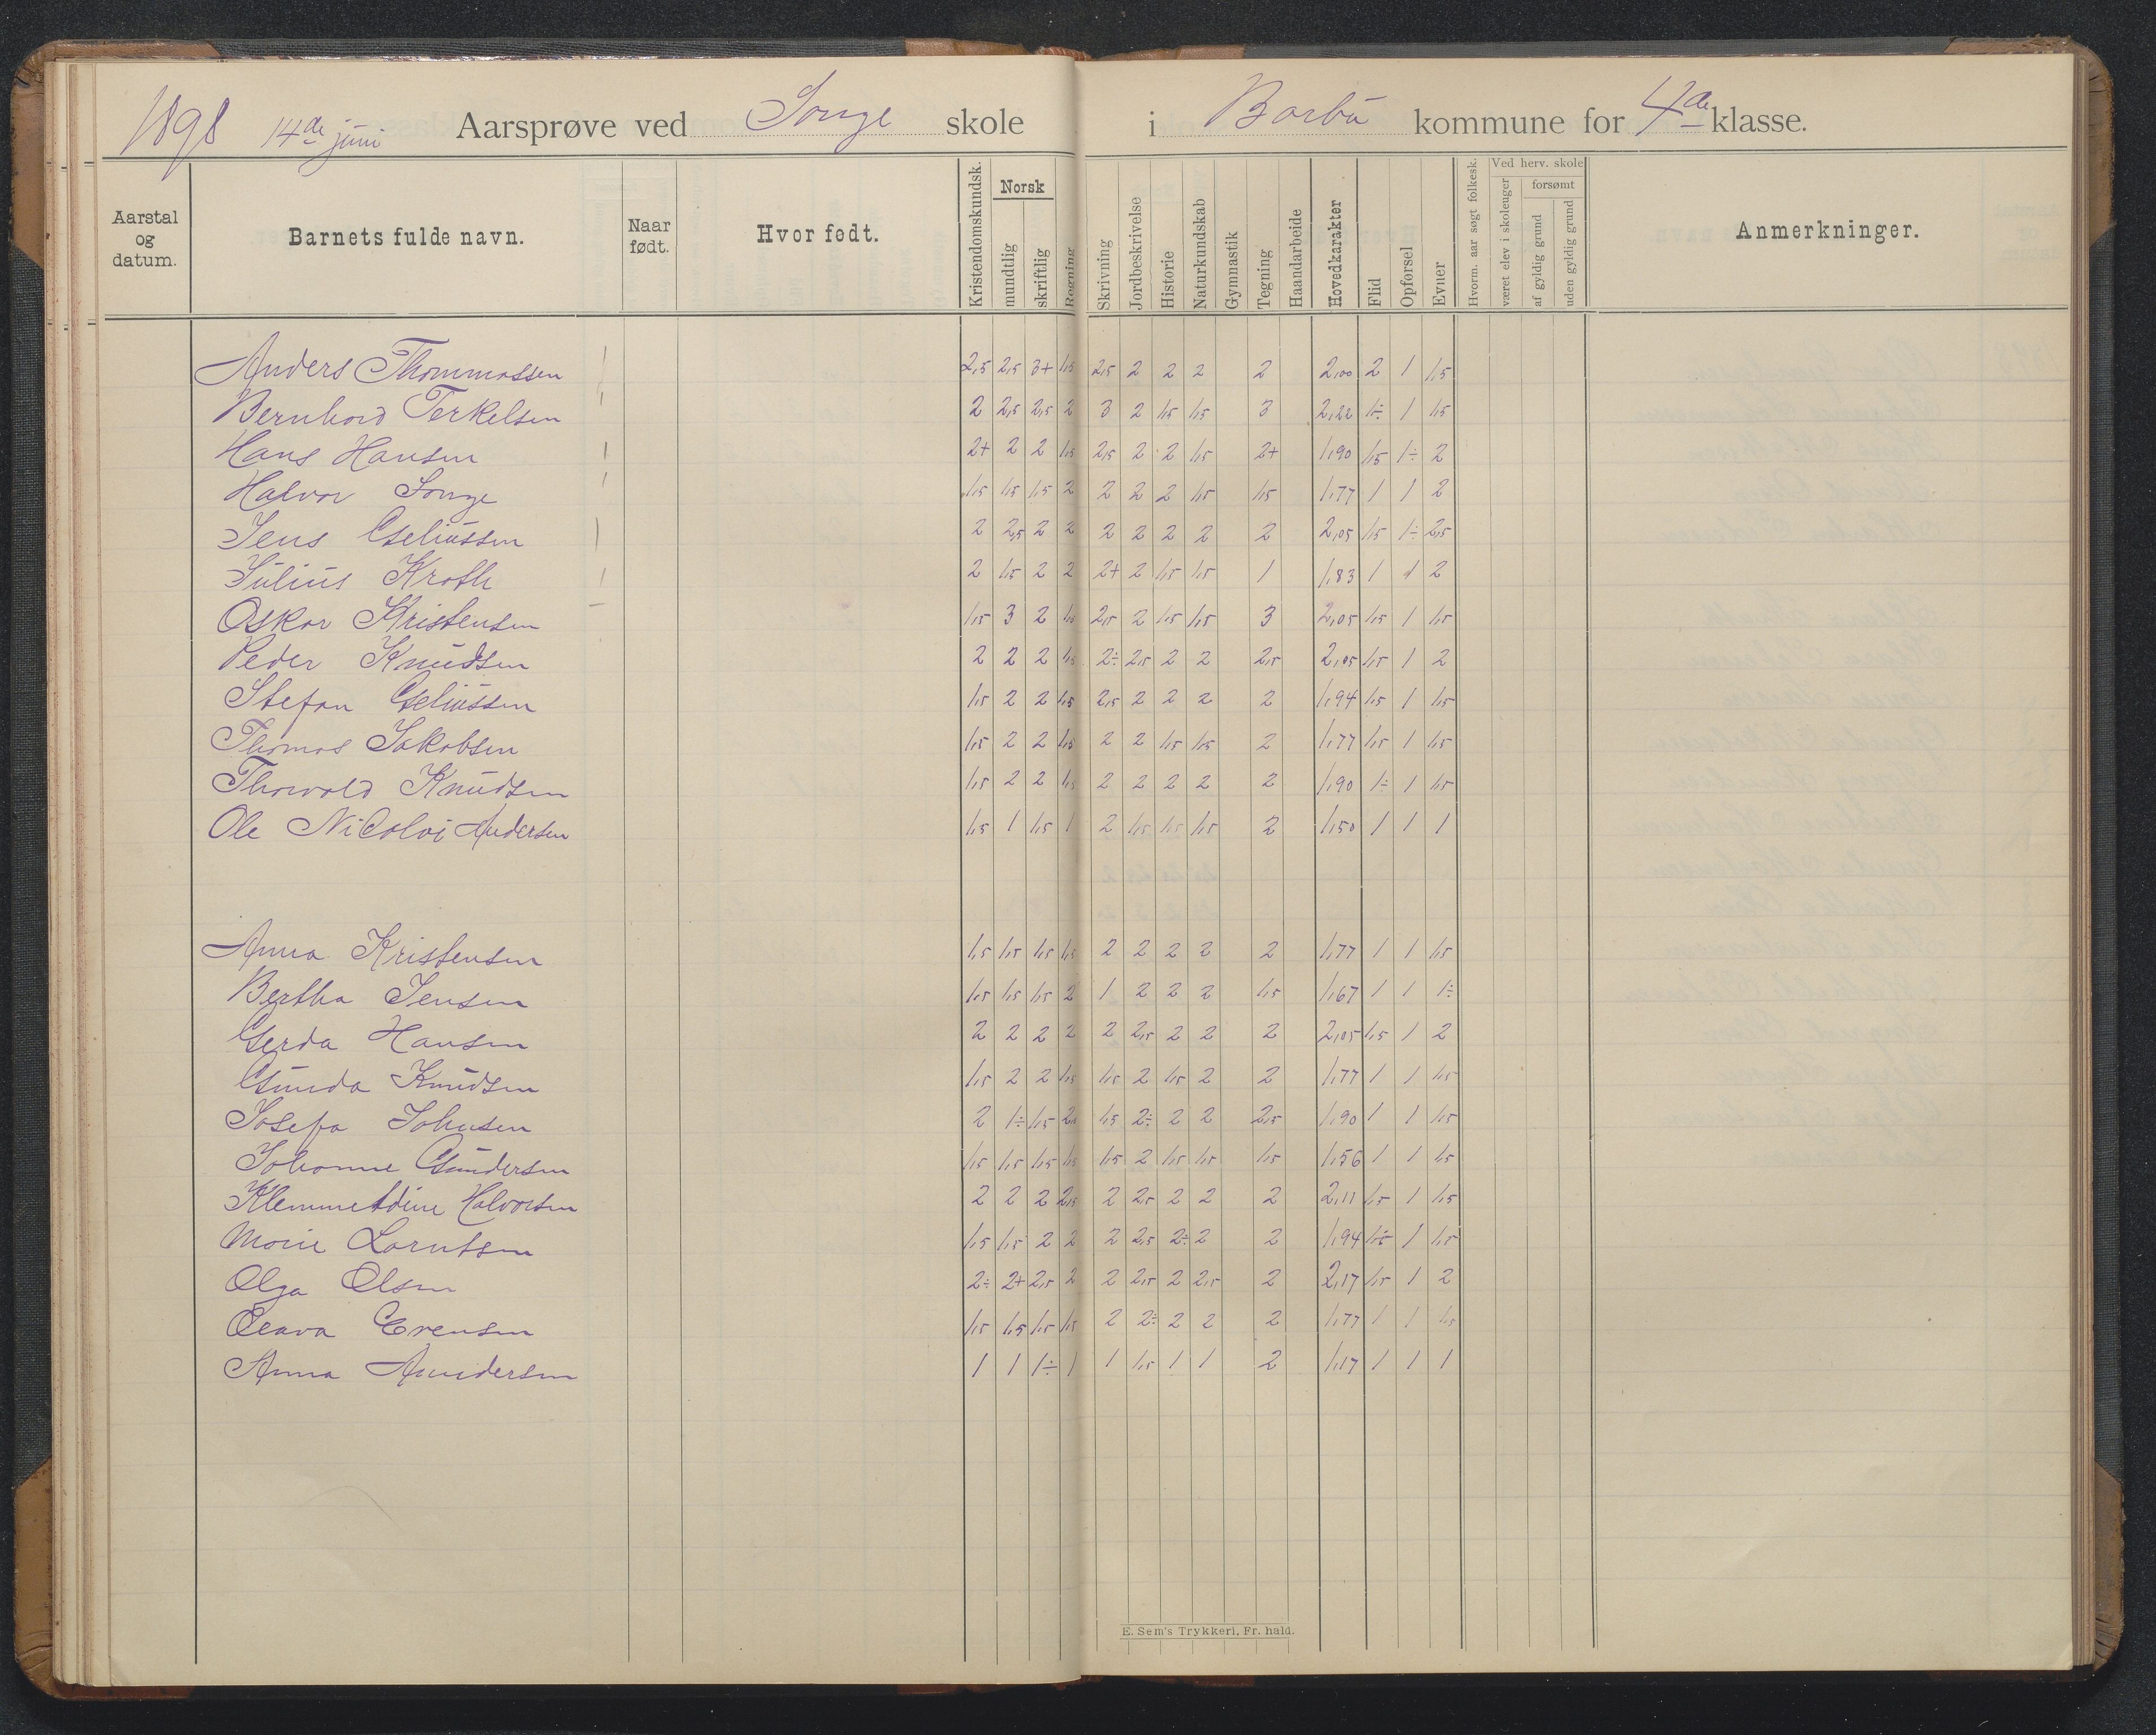 1898 14de juni Aarsprøve ved Songe skole i Barbu kommune for 4de klasse.
Aarstal og datum. Barnets fulde navn. Naar født. Hvor født. Kristendomskundsk. Norsk mundtlig skriftlig Regning Skrivning Jordbeskrivelse Historie Naturkundskab Gymnastik Tegning Haandarbeide Hovedkarakter Flid Opførsel Evner Hvorm. aar søgt folkesk. Ved herv. skole været elev i skoleuger forsømt af gyldig grund uden gyldig grund Anmerkninger.
Anders Thommassen 2,5 2,5 3+ 1,5 2,5 2 2 2 2 2,00 2 1 1,5
Bernhard Terkelsen 2 2,5 2,5 2 3 2 1,5 1,5 3 2,22 1÷ 1 1,5
Hans Hansen 2+ 2 2 1,5 2,5 2 2 1,5 2+ 1,90 1,5 1÷ 2
Halvor Songe 1,5 1,5 1,5 2 2 2 2 1,5 1,5 1,77 1 1 2
Jens Geliussen 2 2,5 2 2 2 2 2 2 2 2,05 1,5 1÷ 2,5
Julius Kroth 2 1,5 2 2 2+ 2 1,5 1,5 1 1,83 1 1 2
Oskar Kristensen 1,5 3 2 1,5 2,5 2 1,5 1,5 3 2,05 1,5 1 1,5
Peder Knudsen 2 2 2 1,5 2÷ 2,5 2 2 2,5 2,05 1,5 1 2
Stefan Geliussen 1,5 2 2 1,5 2,5 2 2 2 2 1,94 1,5 1 1,5
Thomas Jakobsen 1,5 2 2 1,5 2 2 1,5 1,5 2 1,77 1,5 1 1,5
Thorvald Knudsen 1,5 2 2 1,5 2 2 2 2 2 1,90 1÷ 1 1,5
Ole Nicolai Andersen 1,5 1 1,5 1 2 1,5 1,5 1,5 2 1,50 1 1 1
Anna Kristensen 1,5 1,5 1,5 1,5 2 2 2 2 2 1,77 1 1 1,5
Bertha Jensen 1,5 1,5 1,5 2 1 2 2 2 1,5 1,67 1 1 1÷
Gerda Hansen 2 2 2 2 2 2,5 2 2 2 2,05 1,5 1 2
Gunda Knudsen 1,5 2 2 1,5 1,5 2 1,5 2 2 1,77 1 1 1,5
Josefa Johnsen 2 1÷ 1,5 2,5 1,5 2÷ 2 2 2,5 1,90 1 1 1,5
Johanne Gundersen 1,5 1,5 1,5 1,5 1,5 2 1,5 1,5 1,5 1,56 1 1 1,5
Klemmetdine Halvorsen 2 2 2 2,5 2 2,5 2 2 2 2,11 1,5 1 1,5
Marie Larntsen 1,5 1,5 2 2 2 2,5 2÷ 2 2 1,94 1,5 1 1,5
Olga Olsen 2÷ 2+ 2,5 2 2 2,5 2 2,5 2 2,17 1,5 1 2
Evensen 1,5 1,5 1,5 1,5 2 2÷ 2 2 2 1,77 1 1 1,5
Anna Amundersen 1 1 1÷ 1 1 1,5 1 1 2 1,17 1 1 1
E. Sem's Trykkeri, Fr. hald.